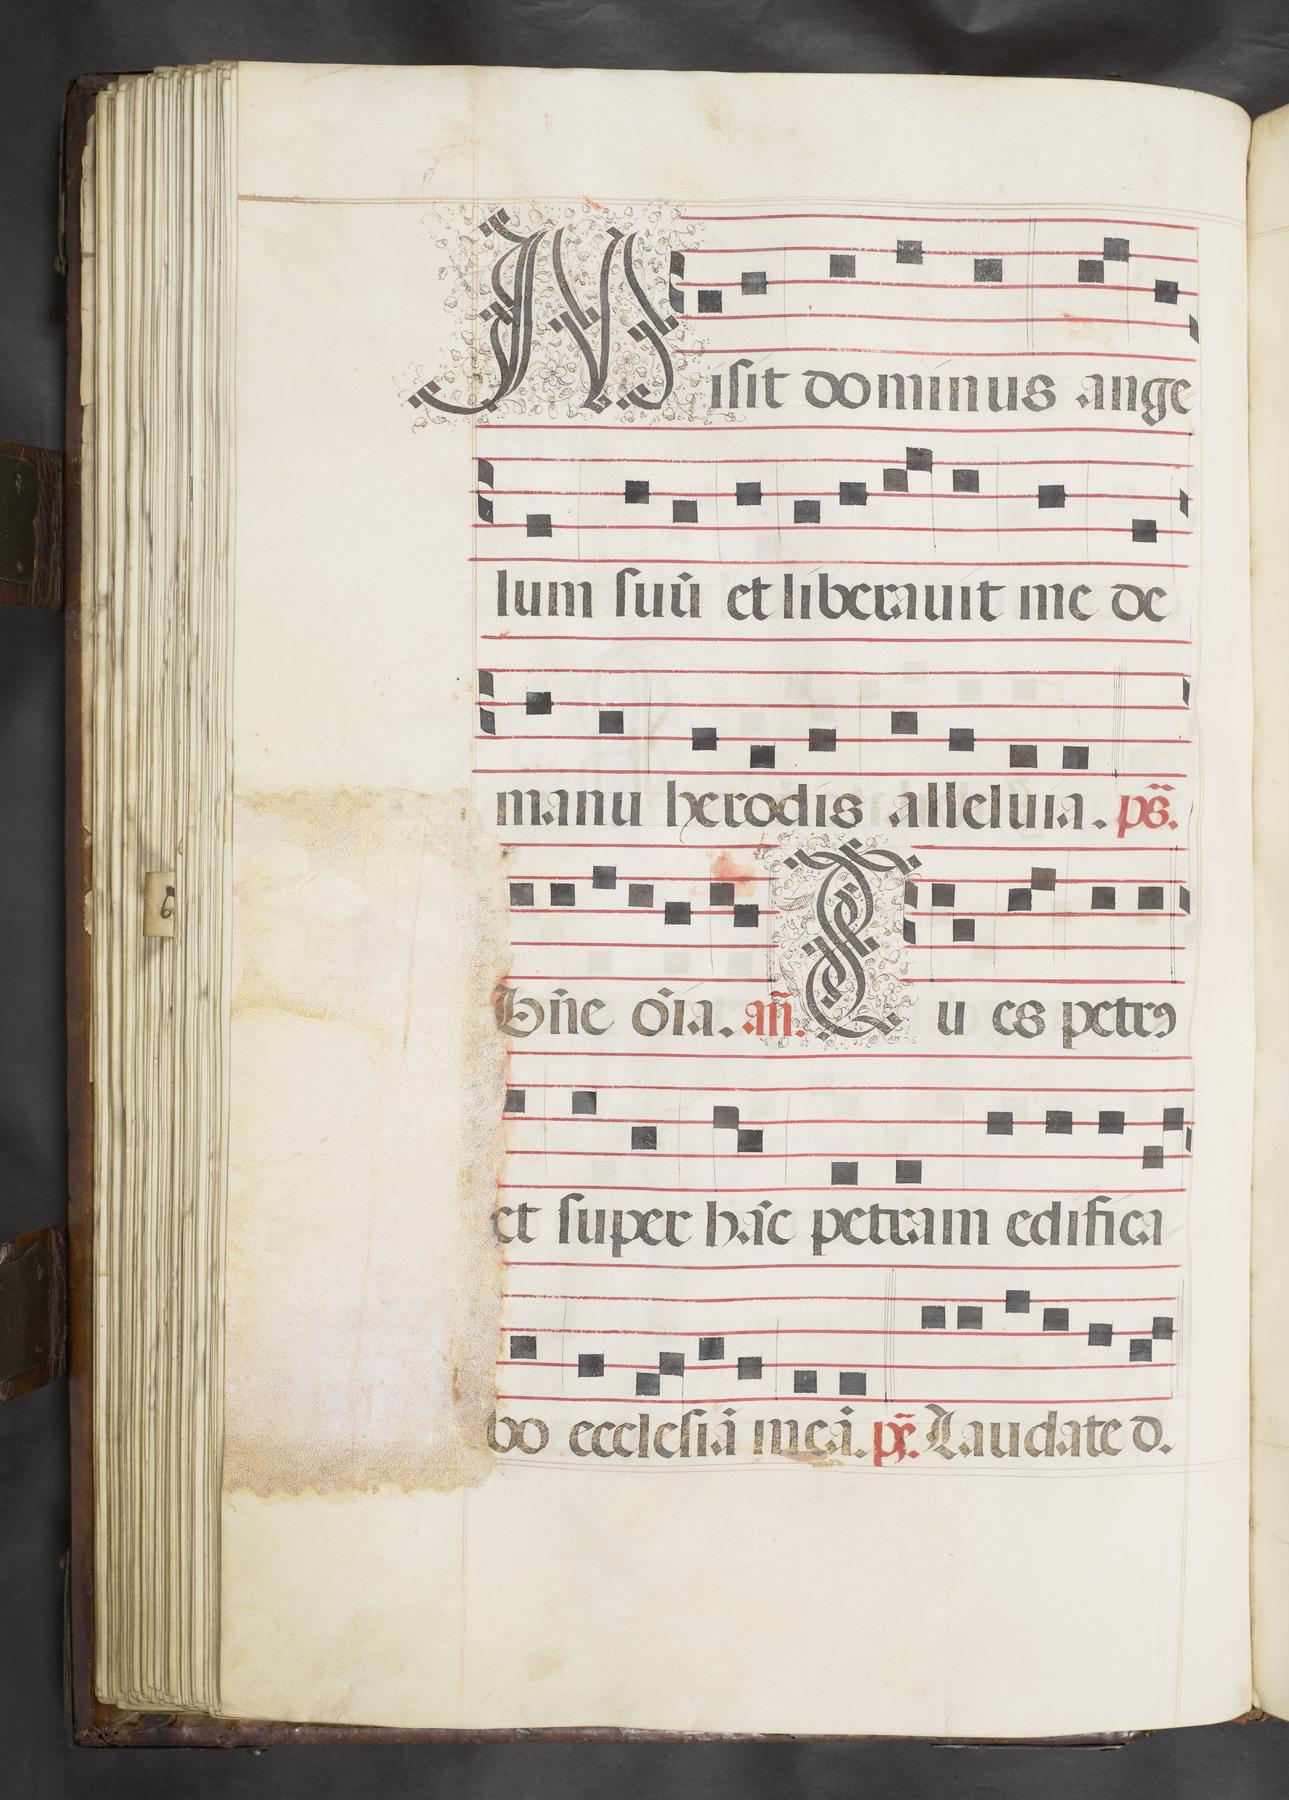 Misit dominus ange
lum suū et liberauit me de
manu herodis alleluia. ps̄.
Dn̄e om̄ia. an̄. Tu es petrꝰ
et super hāc petram edifica
bo ecclesiā meā. ps̄. Laudate d.
6